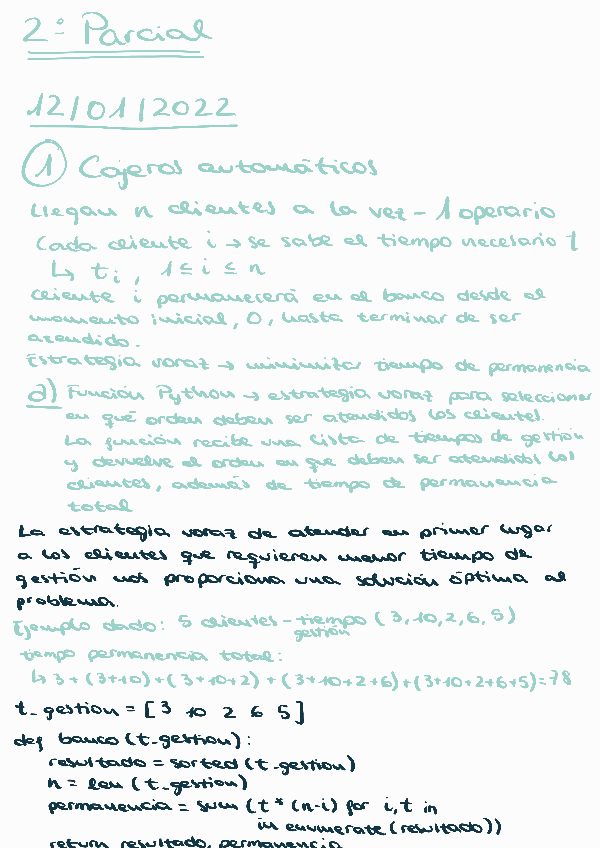 2º Parcial
12/01/2022
① Cajeros automáticos
Llegan n clientes a la vez - 1 operario
Cada cliente i → se sabe el tiempo necesario t
↳ ti, 1 ≤ i ≤ n
cliente i permanecerá en el banco desde el
momento inicial, 0, hasta terminar de ser
atendido.
Estrategia voraz → minimizar tiempo de permanencia
a) Función Python → estrategia voraz para seleccionar
en qué orden deben ser atendidos los clientes.
La función recibe una lista de tiempos de gestión
y devuelve el orden en que deben ser atendidos los
clientes, además de tiempo de permanencia
total
La estrategia voraz de atender en primer lugar
a los clientes que requieren menor tiempo de
gestión nos proporciona una solución óptima al
problema.
Ejemplo dado: 5 clientes - tiempo (3, 10, 2, 6, 5)
gestión
tiempo permanencia total:
↳ 3 + (3+10) + (3+10+2) + (3+10+2+6) + (3+10+2+6+5) = 78
t_gestion = [3 10 2 6 5]
def banco (t_gestion):
resultado = sorted (t_gestion)
n = len (t_gestion)
permanencia = sum (t * (n-i) for i,t in
in enumerate (resultado))
return resultado, permanencia